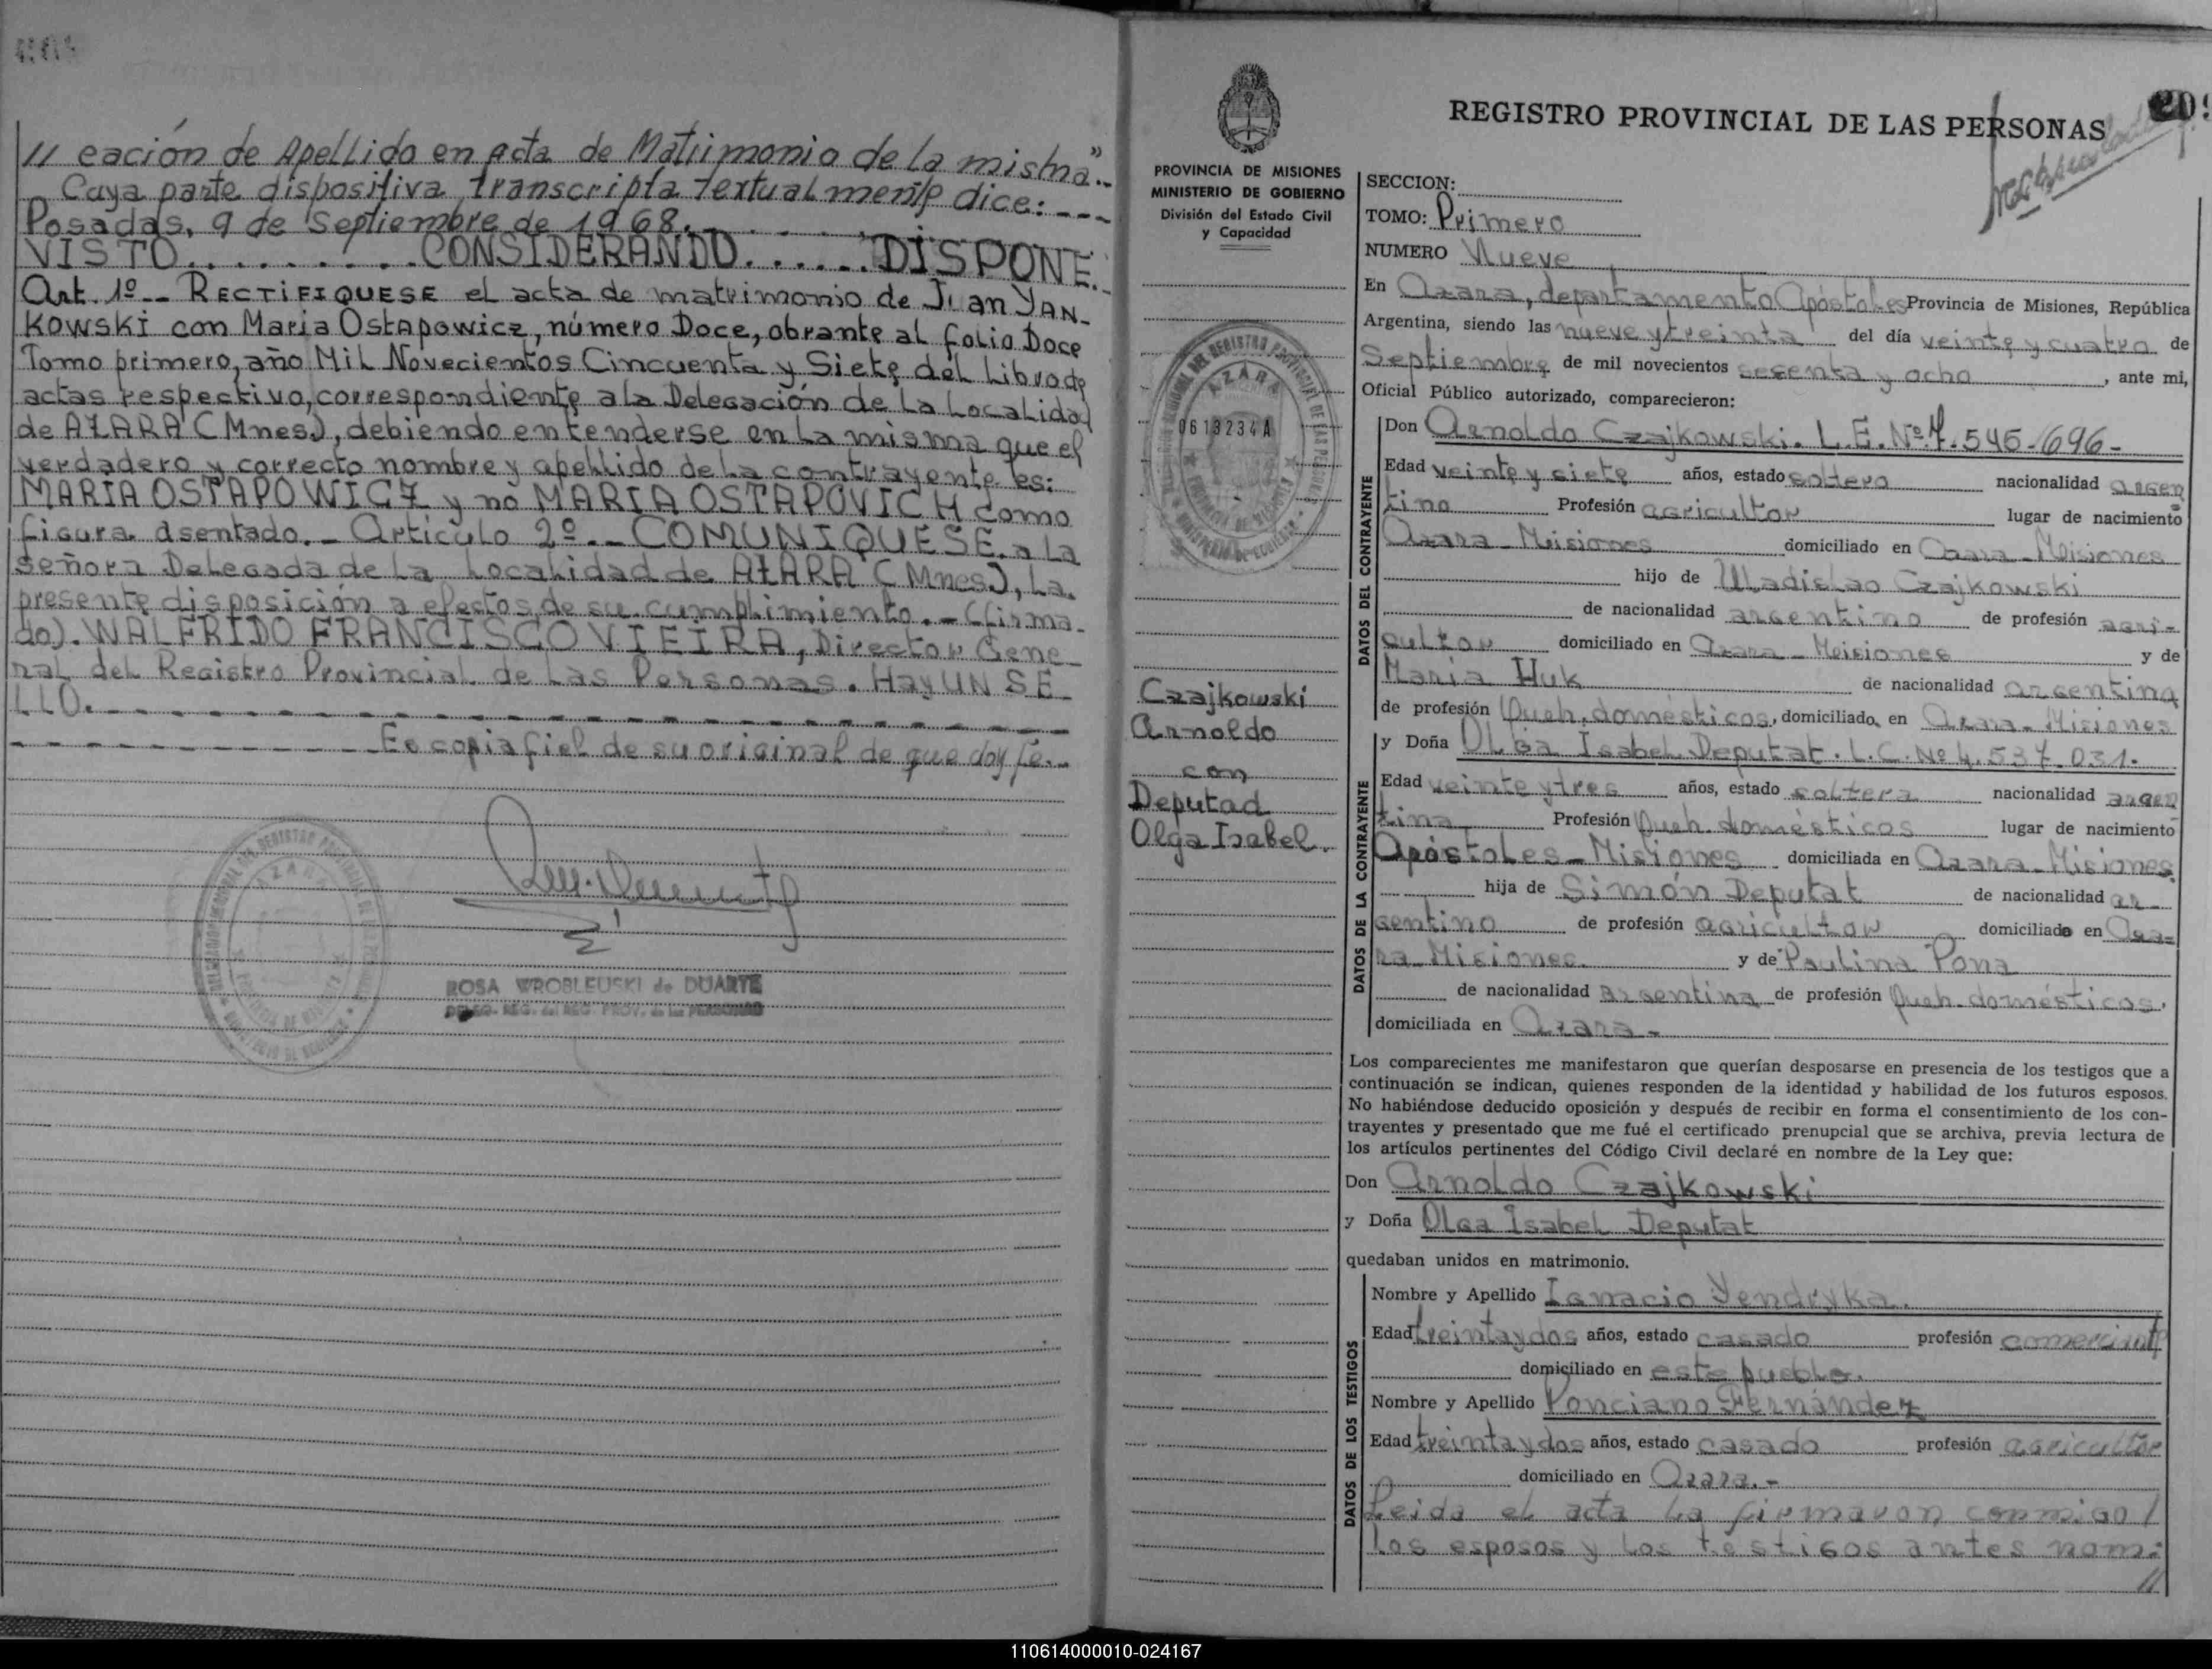 // cación de Apellido en Acta de Matrimonio de la misma".-
Cuya parte dispositiva transcripta textualmente dice:---
Posadas, 9 de Septiembre de 1968.
VISTO..........CONSIDERANDO......DISPONE.-
Art. 1º -- RECTIFIQUESE el acta de matrimonio de Juan YAN-
KOWSKI con Maria Ostapowicz, número Doce, obrante al folio Doce
Tomo primero, año Mil Novecientos Cincuenta y Siete del Libro de
actas respectivo, correspondiente a la Delegación de la Localidad
de AZARA (Mnes), debiendo entenderse en la misma que el
verdadero y correcto nombre y apellido de la contrayente es:
MARIA OSTAPOWICZ y no MARIA OSTAPOVICH como
figura asentado.- Artículo 2º.- COMUNIQUESE a la
Señora Delegada de la Localidad de AZARA (Mnes), la
presente disposición a efectos de su cumplimiento.- (firma-
do). WALFRIDO FRANCISCO VIEIRA, Director Gene-
ral del Registro Provincial de las Personas. Hay UN SE-
LLO.
Es copia fiel de su original de que doy fé.-
AZARA
ROSA WROBLEUSKI de DUARTE
DELEG. REG. del REG. PROV. de las PERSONAS
PROVINCIA DE MISIONES
MINISTERIO DE GOBIERNO
División del Estado Civil
y Capacidad
AZARA
0613234A
Czajkowski
Arnoldo
con
Deputad
Olga Isabel.
REGISTRO PROVINCIAL DE LAS PERSONAS
209
SECCION:
TOMO: Primero
NUMERO Nueve
En Azara, departamento Apóstoles Provincia de Misiones, República
Argentina, siendo las nueve y treinta del día veinte y cuatro de
Septiembre de mil novecientos sesenta y ocho, ante mi,
Oficial Público autorizado, comparecieron:
DATOS DEL CONTRAYENTE
Don Arnoldo Czajkowski. L.E. Nº 7.545.696-
Edad veinte y siete años, estado soltero nacionalidad argen
tino Profesión agricultor lugar de nacimiento
Azara - Misiones domiciliado en Azara - Misiones
hijo de Wladislao Czajkowski
de nacionalidad argentino de profesión agri-
cultor domiciliado en Azara - Misiones y de
Maria Huk de nacionalidad argentina
de profesión Queh. domésticos, domiciliado en Azara - Misiones
DATOS DE LA CONTRAYENTE
y Doña Olga Isabel Deputat. L.C. Nº 4.537.031.
Edad veinte y tres años, estado soltera nacionalidad argen
tina Profesión Queh. domésticos lugar de nacimiento
Apóstoles - Misiones domiciliada en Azara - Misiones.
hija de Simón Deputat de nacionalidad ar-
gentino de profesión agricultor domiciliado en Aza-
ra - Misiones. y de Paulina Pona
de nacionalidad argentina de profesión Queh. domésticos,
domiciliada en Azara -
Los comparecientes me manifestaron que querían desposarse en presencia de los testigos que a
continuación se indican, quienes responden de la identidad y habilidad de los futuros esposos.
No habiéndose deducido oposición y después de recibir en forma el consentimiento de los con-
trayentes y presentado que me fué el certificado prenupcial que se archiva, previa lectura de
los artículos pertinentes del Código Civil declaré en nombre de la Ley que:
Don Arnoldo Czajkowski
y Doña Olga Isabel Deputat
quedaban unidos en matrimonio.
DATOS DE LOS TESTIGOS
Nombre y Apellido Ignacio Yendryka.
Edad treinta y dos años, estado casado profesión comerciante
domiciliado en este pueblo.
Nombre y Apellido Ponciano Fernández
Edad treinta y dos años, estado casado profesión agricultor
domiciliado en Azara.-
Leida el acta la firmaron conmigo /
los esposos y los testigos antes nom-
//
110614000010-024167